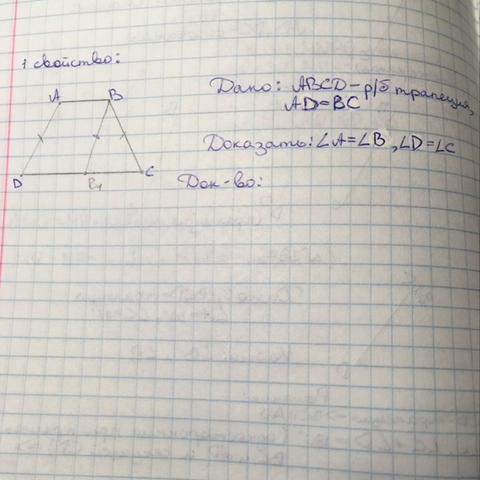 1 свойство:
A B
Дано: ABCD – р/б трапеция,
AD=BC
Доказать: ∠A=∠B, ∠D=∠C
D B₁ C
Док-во: